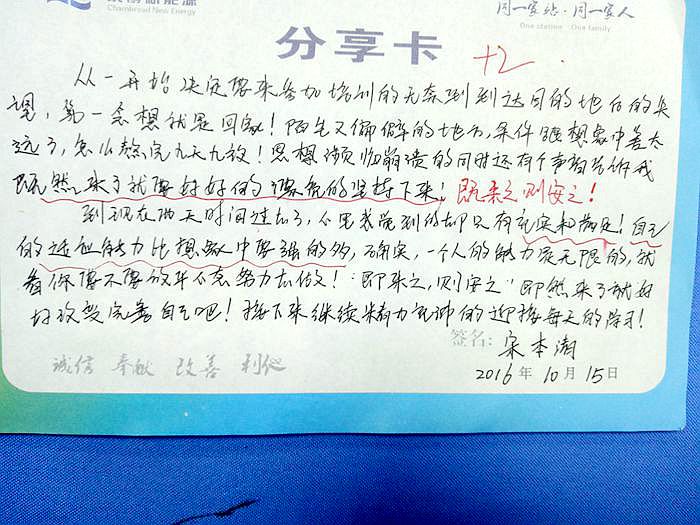 Chambroad New Energy
同一家站·同一家人
One station One family
分享卡
+2
从一开始决定要来参加培训的无奈到到达目的地后的失
望，第一念想就是回家！陌生又偏僻的地方，条件跟想象中差太
远了，怎么熬完九天九夜！思想濒临崩溃的同时还有个声音告诉我
既然来了就要好好的 的坚持下来！既来之则安之！
到现在两天时间过去了，心里感觉到的却只有充实和满足！自己
的适应能力比想象中要强的多，确实，一个人的能力是无限的，就
看你要不要放弃不去努力去做！“即来之，则安之”即然来了就好
好改变完善自己吧！接下来继续精力充沛的迎接每天的学习！
签名：宋本湘
诚信 奉献 改善 利他
2016年10月15日